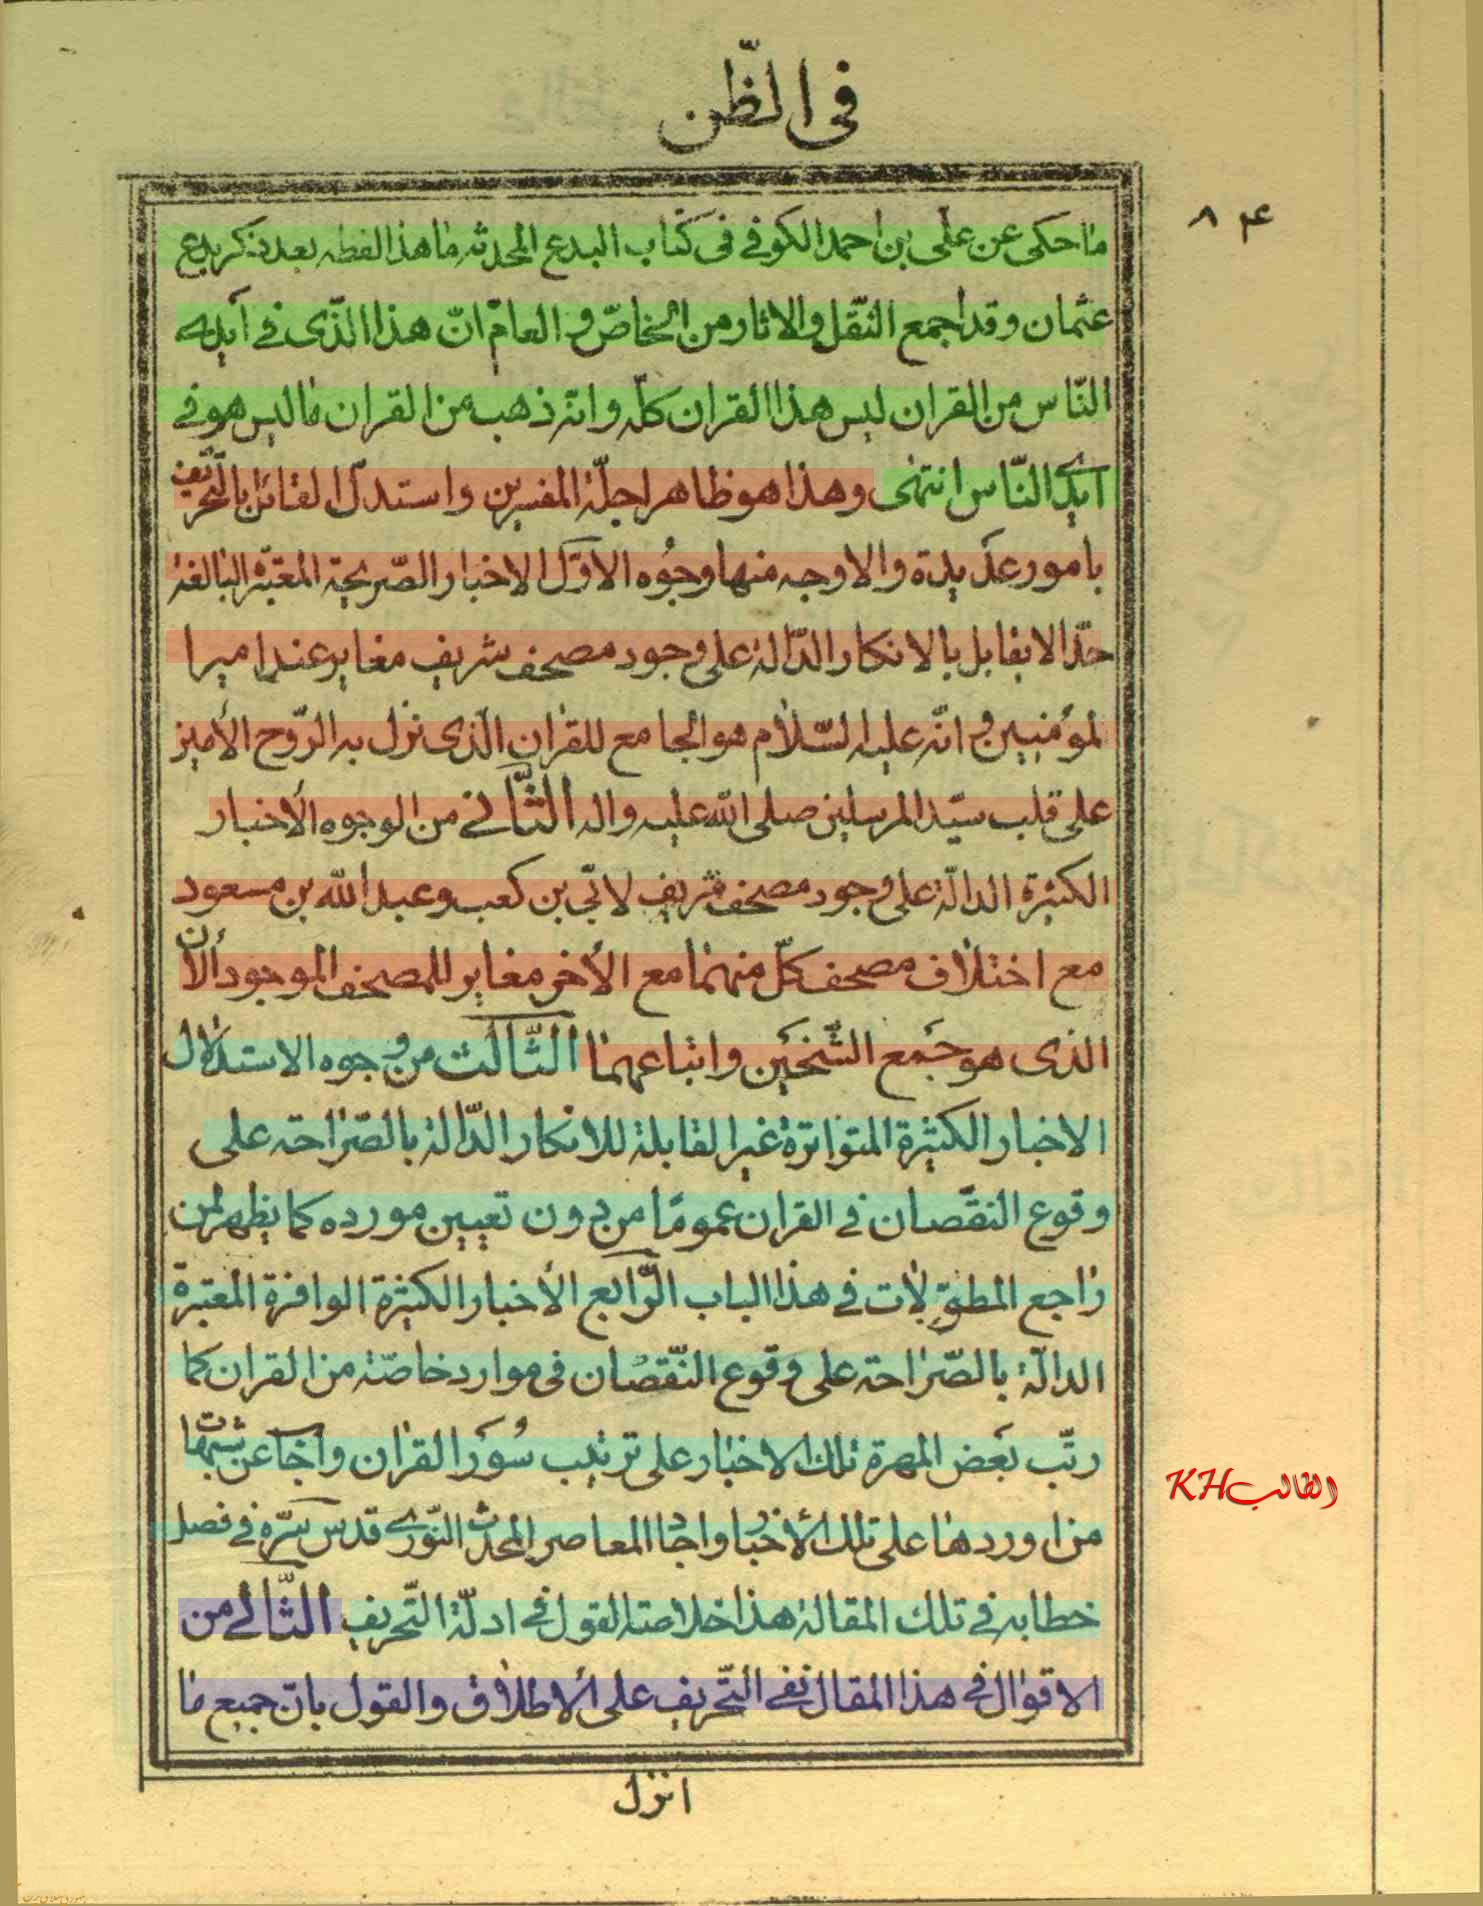 فى الظّن
٨۴
ما حكى عن على بن احمد الكوفے فى كتاب البدع المحدثه ما هذا لفظه بعد ذكر بدع
عثمان و قد اجمع النّقل والاثار من الخاصّ و العامّ انّ هذا الذّى فے أيدے
النّاس من القران ليس هذا القران كلّه وانّه ذهب من القران ما ليس هو فے
ايدے النّاس انتهى وهذا هو ظاهر اجلّة المفسرين واستدلّ القائل بالتّحريف
بامور عديدة والاوجه منها وجُوه الأوّل الاخبار الصّريحة المعتبرة البالغة
حدّ الا يقابل بالانكار الدّالة على وجود مصحف شريف مغاير عند اميرا
لمؤمنيين و انّه عليه السّلام هو الجامع للقران الّذى نزل به الرّوح الأمين
على قلب سيّد المرسلين صلى الله عليه واله الثّانے من الوجوه الأخبار
الكثيرة الدالّة على وجود مصحف شريف لابّي بن كعب وعبد الله بن مسعود
مع اختلاف مصحف كلّ منهما مع الأخر مغاير للمصحف الموجود ألأن
الذى هو جَمع الشّيخَين واتباعهما الثّالث من وجوه الاستدلال
الاخبار الكثيرة المتواترة غير القابلة للانكار الدّالة بالصّراحة على
وقوع النقّصان فے القران عمومًا من دون تعيين مورده كما يظهر لمن
راجع المطوّلات فے هذا الباب الرّابع الأخبار الكثيرة الوافرة المعتبرة
الدالّة بالصّراحة على وقوع النّقصان فى موارد خاصّة من القران كما
رتّب بَعض المهرة تلك الاخبار على ترتيب سُوَر القران وأجاَ عن شبهات
من اوردها على تلك ألأخبار واجاد المعاصر المحدث النّورے قدس سرّه فے فصل
خطابه فے تلك المقالة هذا خلاصة القول فے ادلّة التّحريف الثّانے من
الاقوال فے هذا المقال نفے التّحريف على ألاطلاق والقول بانّ جميع ما
انزل
الطالبKH